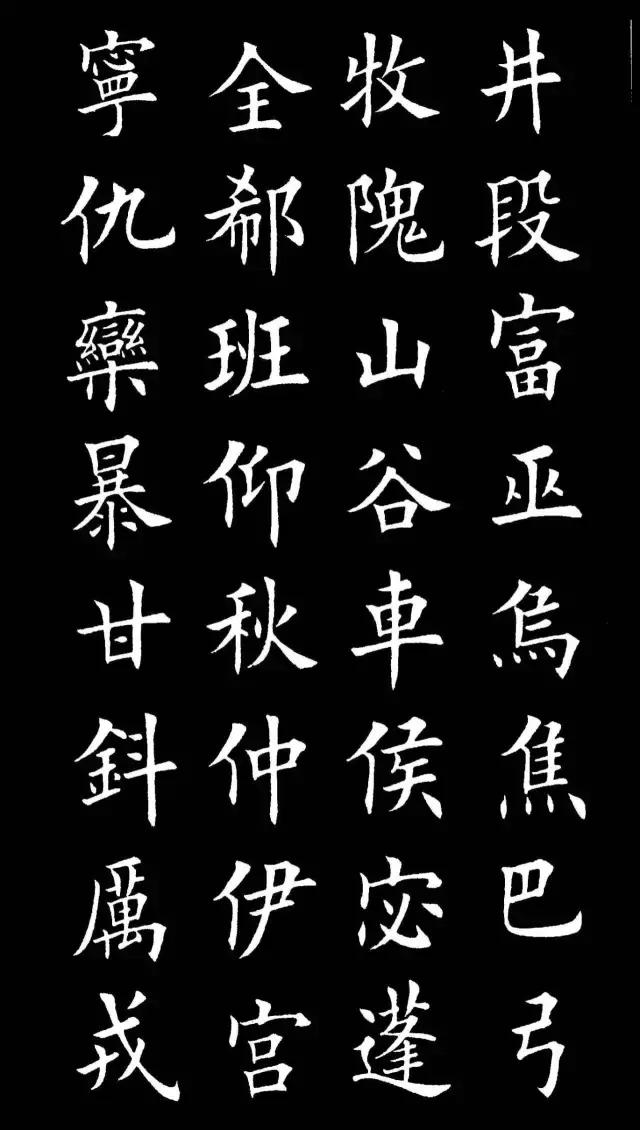 井段富巫烏焦巴弓
牧隗山谷車侯宓蓬
全郗班仰秋仲伊宫
寧仇欒暴甘鈄厲戎